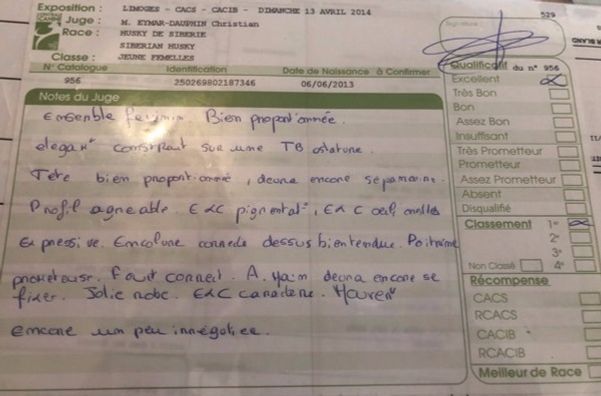 Exposition : LIMOGES - CACS - CACIB - DIMANCHE 13 AVRIL 2014
Juge : M. EYMAR-DAUPHIN Christian
Race : HUSKY DE SIBERIE
SIBERIAN HUSKY
Classe : JEUNE FEMELLES
N° Catalogue Identification Date de Naissance à Confirmer
956 250269802187346 06/06/2013
Notes du Juge
Ensemble féminin. Bien proportionnée.
elegante construit sur une TB ostature.
Tête bien proportionnée, devra encore se parfaire.
Profil agréable. Exc pigmentat°, Exc oeil, oreilles
Expressive. Encolure correcte dessus bien tendue. Poitrine
prometteuse. Fouet correct. A. main devra encore se
fixer. Jolie robe. Exc caractère. Mouvemt
encore un peu irrégulier.
Signature :
529
Qualificatif du n° 956
Excellent
Très Bon
Bon
Assez Bon
Insuffisant
Très Prometteur
Prometteur
Assez Prometteur
Absent
Disqualifié
Classement 1er
2e
3e
Non Classé 4e
Récompense
CACS
RCACS
CACIB
RCACIB
Meilleur de Race